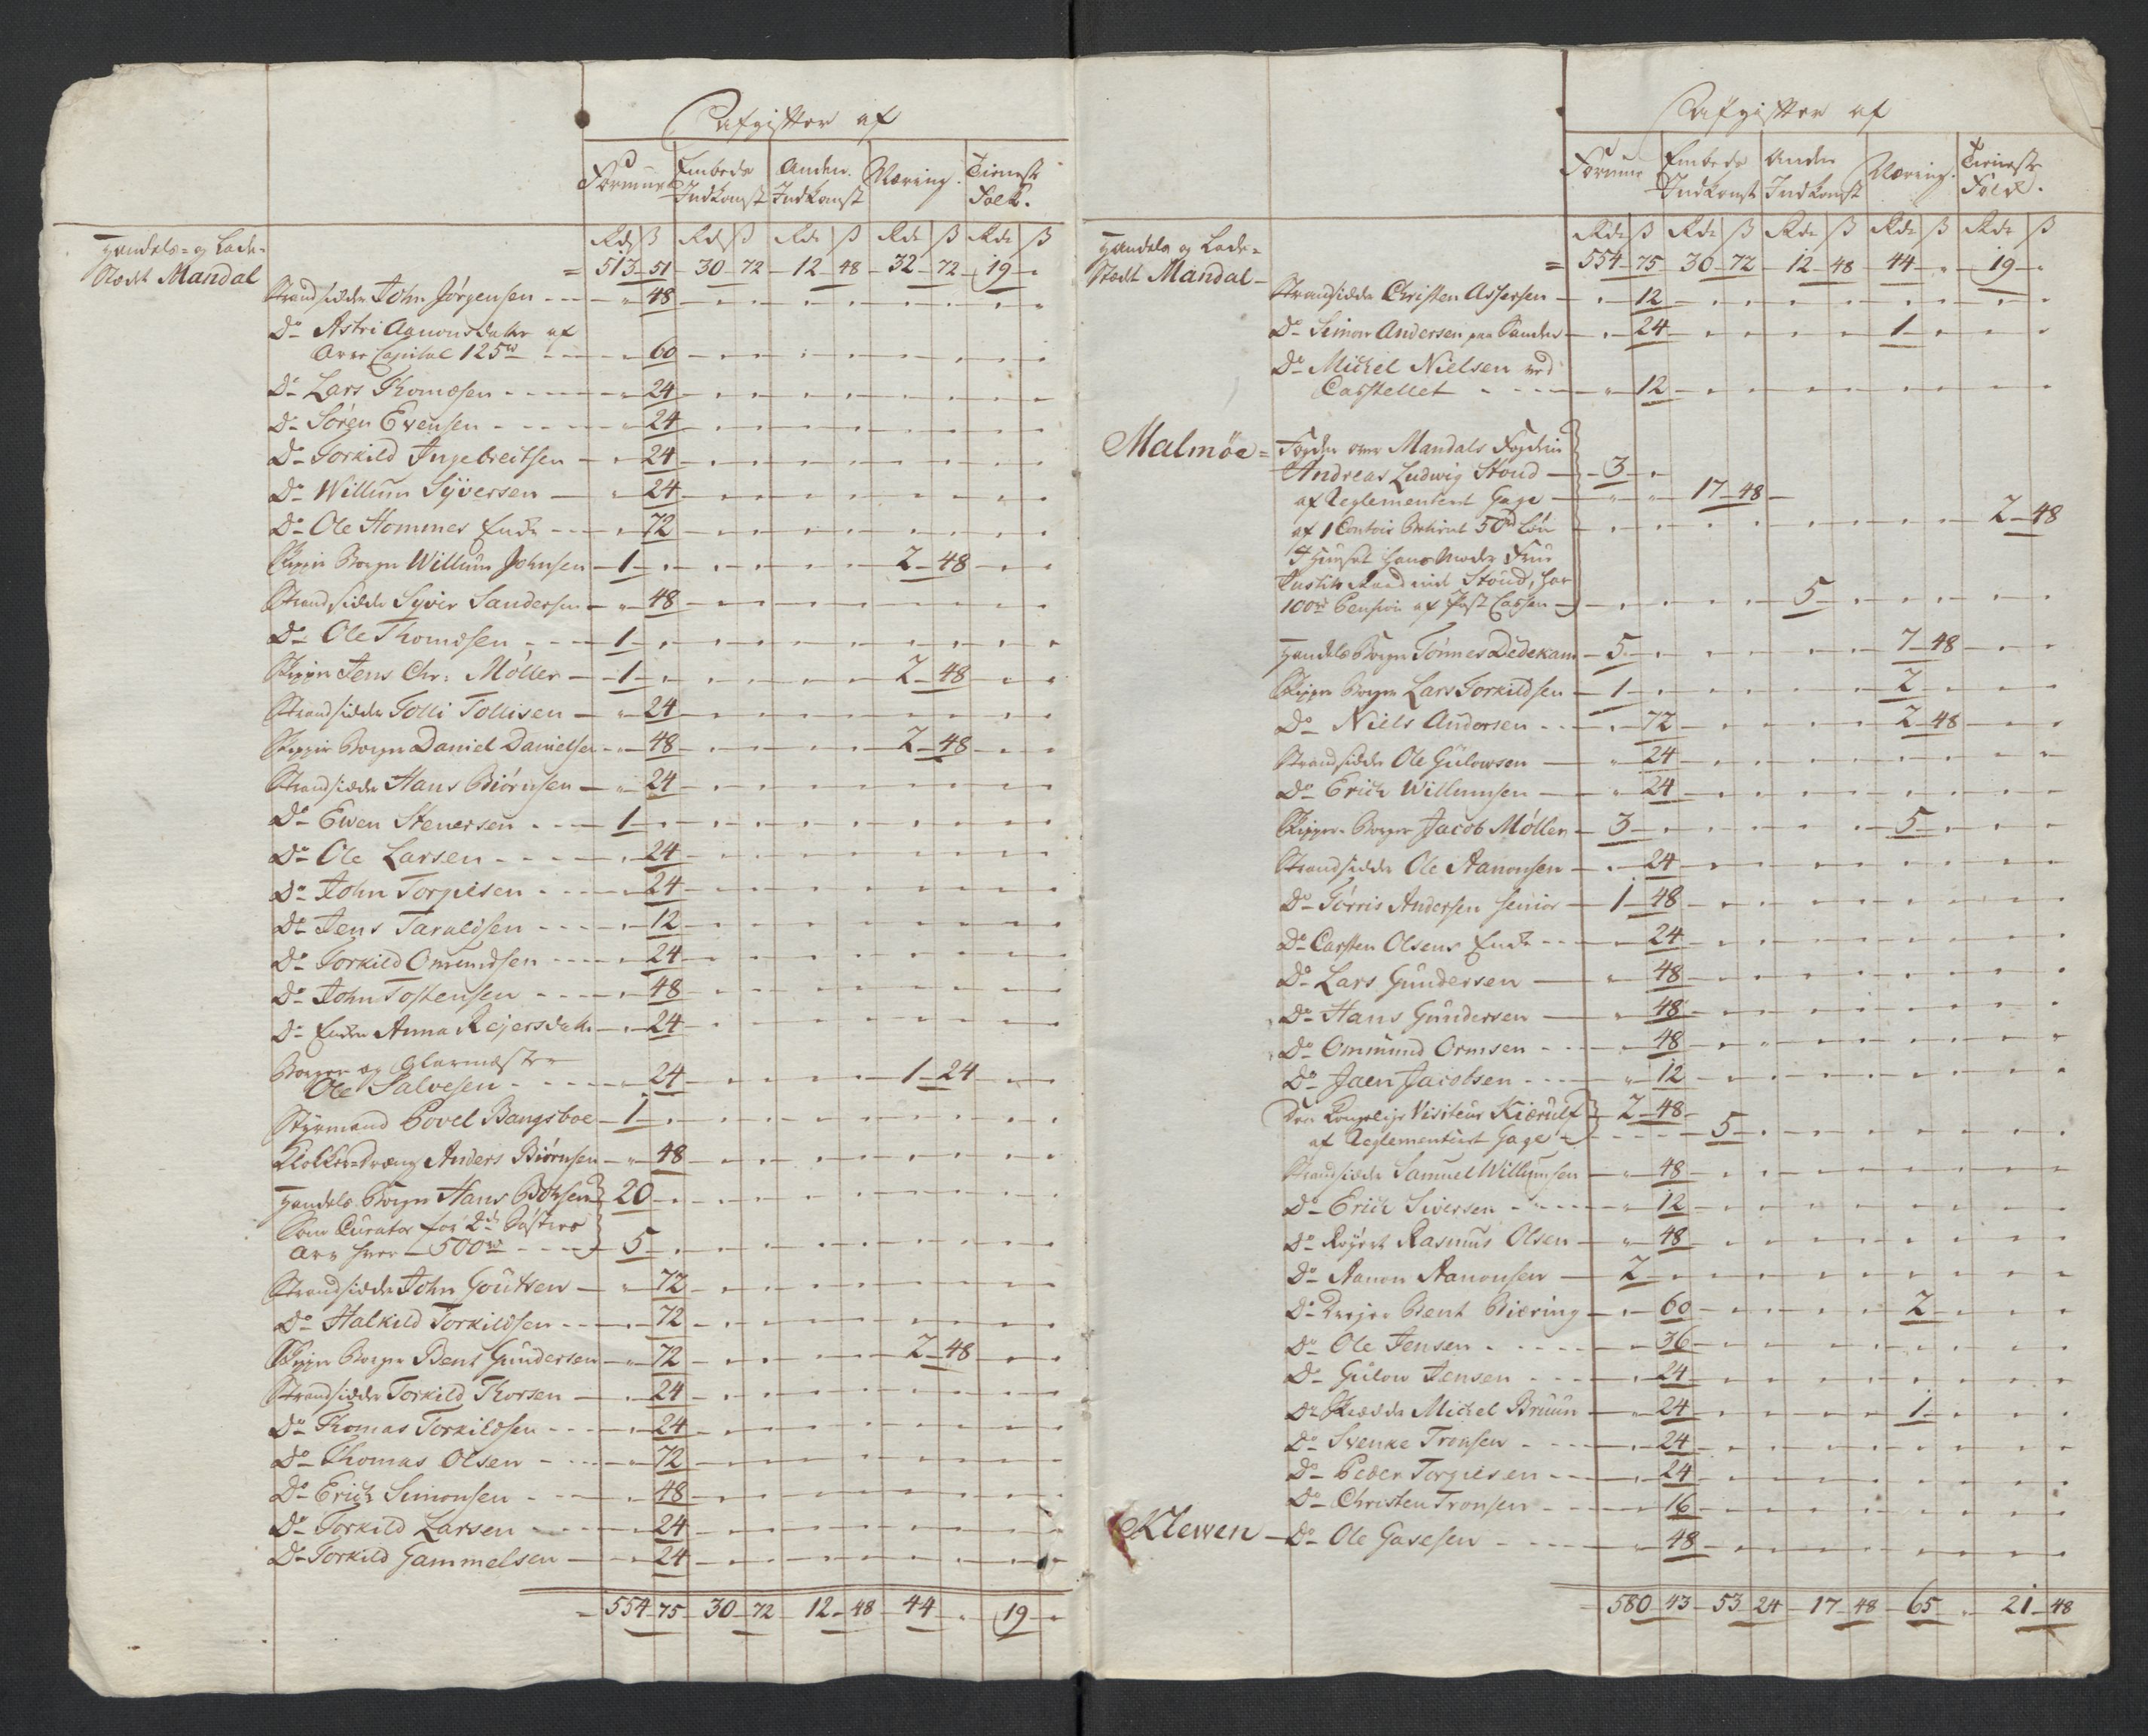 Afgifter af
Formue Embeds Indkomst Anden Indkomst Næring Tieneste Folk.
Rdr ß Rdr ß Rdr ß Rdr ß Rdr ß
Handels- og Lade-
Stædt Mandal = 513 51 30 72 12 48 32 72 19 -
Strandsidder John Jörgensen - 48
Do Astri Aanonsdatter af
Arve Capital 125rd - 60
Do Lars Thomesen - 24
Do Sören Evensen - 24
Do Torkild Ingebreitsen - 24
Do Willum Syversen - 24
Do Ole Hommes Enke - 72
Skipper Borger Willum Johnsen 1 - 2 48
Strandsidder Syver Sandersen - 48
Do Ole Thomesen 1 -
Skipper Jens Chr: Möller 1 - 2 48
Strandsidder Tolli Tollisen - 24
Skipper Borger Daniel Danielsen - 48 2 48
Strandsidder Hans Biörnsen - 24
Do Ewen Stenersen 1 -
Do Ole Larsen - 24
Do John Torgiesen - 24
Do Jens Taraldsen - 12
Do Torkild Omundsen - 24
Do John Tostensen - 48
Do Enke Anna Rejersdatter - 24
Borger og Glarmæster
Ole Salvesen - 24 1 24
Styrmand Povel Bangsboe 1 -
Klokkerdreng Anders Biörnsen - 48
Handels Borger Hans Boysen 20 -
Som Curator for 2de Söstres
Arv hver 500rd 5 -
Strandsidder John Goutsen - 72
Do Halkild Torkildsen - 72
Skipper Borger Bent Gundersen - 72 2 48
Strandsidder Torkild Thorsen - 24
Do Thomas Torkildsen - 24
Do Thomas Olsen - 72
Do Erich Simonsen - 48
Do Torkild Larsen - 24
Do Torkild Gammelsen - 24
= 554 75 30 72 12 48 44 - 19 -
Afgifter af
Formue Embeds Indkomst Anden Indkomst Næring. Tieneste Folk.
Rdr ß Rdr ß Rdr ß Rdr ß Rdr ß
Handels og Lade-
Stædt Mandal = 554 75 30 72 12 48 44 - 19 -
Strandsidder Christen Assersen - 12
Do Simon Andersen paa Sanden - 24 1 -
Do Michel Nielsen ved
Castellet - 12
Malmöe = Fogden over Mandals Fogderie
Andreas Ludwig Stoud 3 -
af Reglementeret Gage 17 48
af 1 Contoir Betient 50rd Lön 2 48
I Huuset hans Moder Frue
Justits Raadinde Stoud, har
100rd Pension af Post Cassen 5 -
Handels Borger Tönnes Dedekam 5 - 7 48
Skipper Borger Lars Torkildsen 1 - 2 -
Do Niels Andersen - 72 2 48
Strandsidder Ole Gulowsen - 24
Do Erich Willumsen - 24
Skipper Borger Jacob Möller 3 - 5 -
Strandsidder Ole Aanonsen - 24
Do Törris Andersen senior 1 48
Do Carsten Olsens Enke - 24
Do Lars Gundersen - 48
Do Hans Gundersen - 48
Do Ommund Ormsen - 48
Do Jaen Jacobsen - 12
Den Kongelige Visiteur Kierulf 2 48
af Reglementeret Gage 5 -
Strandsidder Samuel Willumsen - 48
Do Erich Siversen - 12
Do Rasmus Olsen - 48
Do Aanon Aanonsen 2 -
Do Dreyer Bent Biering - 60 2 -
Do Ole Jensen - 36
Do Gulow Jensen - 24
Do Skrædder Michel Bruun - 24 1 -
Do Svenke Tronsen - 24
Do Peder Torgiesen - 24
Do Christen Tronsen - 16
Klewen - Do Ole Gasesen - 48
580 43 53 24 17 48 65 - 21 48